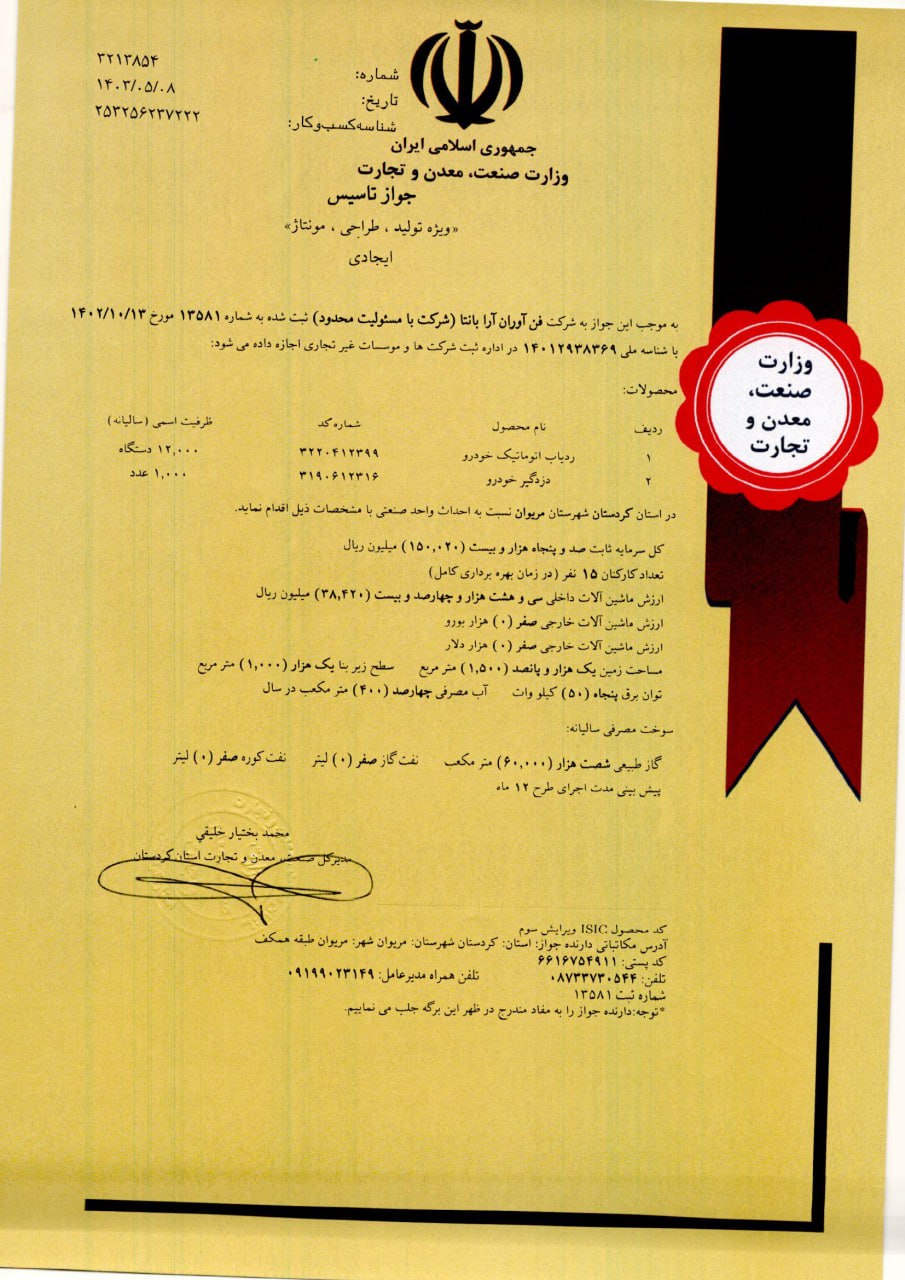 شماره: ۳۲۱۳۸۵۴
تاریخ: ۱۴۰۳/۰۵/۰۸
شناسه کسب‌وکار: ۲۵۳۲۵۶۲۳۷۲۲۲
جمهوری اسلامی ایران
وزارت صنعت، معدن و تجارت
جواز تاسیس
«ویژه تولید ، طراحی ، مونتاژ»
ایجادی
به موجب این جواز به شرکت فن آوران آرا بانتا (شرکت با مسئولیت محدود) ثبت شده به شماره ۱۳۵۸۱ مورخ ۱۴۰۲/۱۰/۱۳
با شناسه ملی ۱۴۰۱۲۹۳۸۳۶۹ در اداره ثبت شرکت ها و موسسات غیر تجاری اجازه داده می شود:
وزارت
صنعت،
معدن و
تجارت
محصولات:
ردیف نام محصول شماره کد ظرفیت اسمی (سالیانه)
۱ ردیاب اتوماتیک خودرو ۳۲۲۰۴۱۲۳۹۹ ۱۲,۰۰۰ دستگاه
۲ دزدگیر خودرو ۳۱۹۰۶۱۲۳۱۶ ۱,۰۰۰ عدد
در استان کردستان شهرستان مریوان نسبت به احداث واحد صنعتی با مشخصات ذیل اقدام نماید.
کل سرمایه ثابت صد و پنجاه هزار و بیست (۱۵۰,۰۲۰) میلیون ریال
تعداد کارکنان ۱۵ نفر (در زمان بهره برداری کامل)
ارزش ماشین آلات داخلی سی و هشت هزار و چهارصد و بیست (۳۸,۴۲۰) میلیون ریال
ارزش ماشین آلات خارجی صفر (۰) هزار یورو
ارزش ماشین آلات خارجی صفر (۰) هزار دلار
مساحت زمین یک هزار و پانصد (۱,۵۰۰) متر مربع سطح زیر بنا یک هزار (۱,۰۰۰) متر مربع
توان برق پنجاه (۵۰) کیلو وات آب مصرفی چهارصد (۴۰۰) متر مکعب در سال
سوخت مصرفی سالیانه:
گاز طبیعی شصت هزار (۶۰,۰۰۰) متر مکعب نفت گاز صفر (۰) لیتر نفت کوره صفر (۰) لیتر
پیش بینی مدت اجرای طرح ۱۲ ماه
محمد بختیار خلیقي
مدیرکل صنعت، معدن و تجارت استان کردستان
کد محصول ISIC ویرایش سوم
آدرس مکاتباتی دارنده جواز: استان: کردستان شهرستان: مریوان شهر: مریوان طبقه همکف
کد پستی: ۶۶۱۶۷۵۴۹۱۱
تلفن: ۰۸۷۳۳۷۳۰۵۴۴ تلفن همراه مدیرعامل: ۰۹۱۹۹۰۲۳۱۴۹
شماره ثبت ۱۳۵۸۱
*توجه:دارنده جواز را به مفاد مندرج در ظهر این برگه جلب می نماییم.